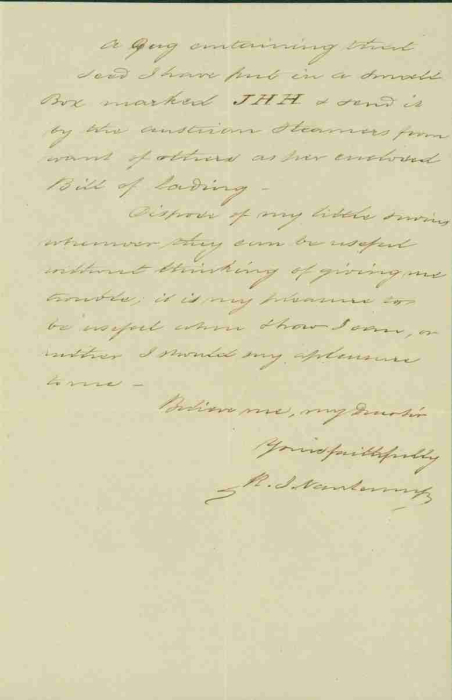 a Bag containing that
seed I have put in a small
Box marked JHH & send is
by the austrian Steamers from
want of others as per enclosed
Bill of lading -
Dispose of my little
whenever they can be useful
without thinking of giving me
trouble; it is my pleasure to
be useful when & how I can, or
rather I should say, a pleasure
to me -
Believe me, my Dear Sir
Yours faithfully
R. J.